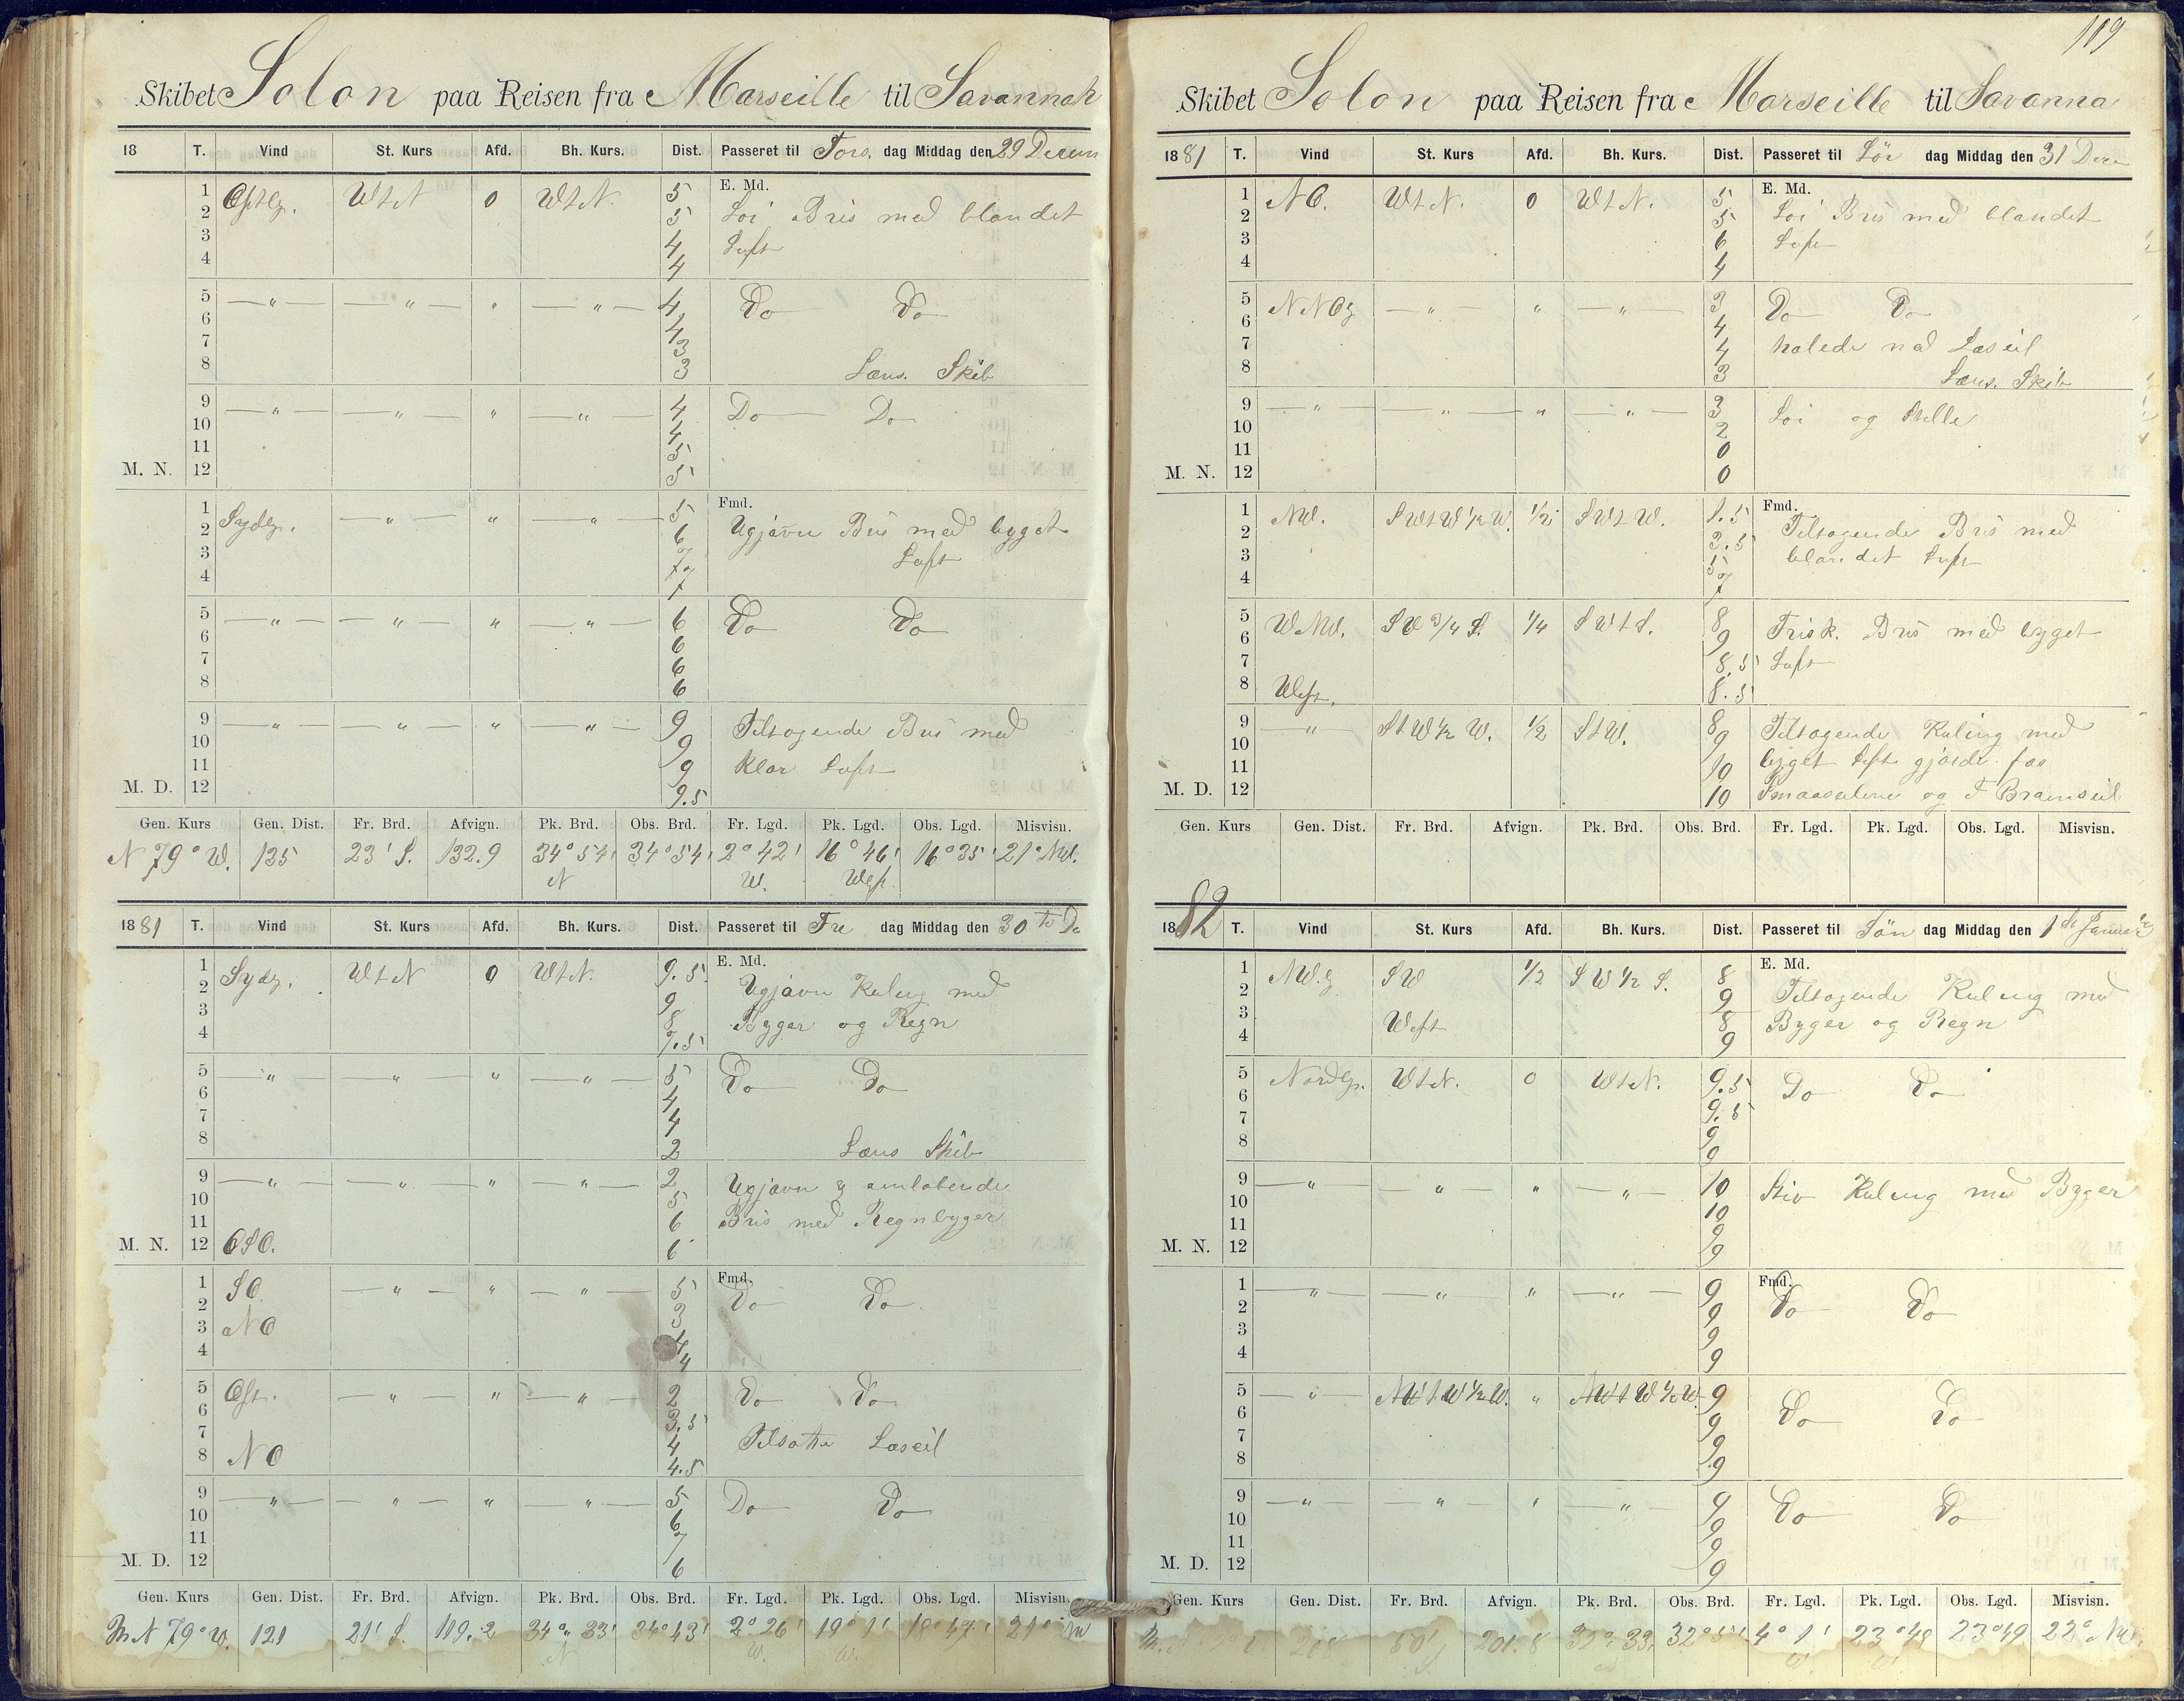 Skibet Solon paa Reisen fra Marseille til Savannah
18 T. Vind St. Kurs Afd. Bh. Kurs. Dist. Passeret til Tors. dag Middag den 29 Decem
E. Md.
1 Østlg. WtN 0 WtN. 5
2 5 Löi Bris med blandet
3 4 Luft
4 4
5 —„— —„— „ —„— 4 Do Do
6 4
7 3
8 3 Læns. Skib
9 —„— —„— „ —„— 4 Do Do
10 4
11 5
M. N. 12 5
Fmd.
1 Sydlg. —„— „ —„— 5
2 6 Ugjävn Bris med byget
3 7 Luft
4 7
5 —„— —„— „ —„— 6 Do Do
6 6
7 6
8 6
9 —„— —„— „ —„— 9 Tiltagende Bris med
10 9
11 9 klar Luft
M. D. 12 9.5
Gen. Kurs Gen. Dist. Fr. Brd. Afvign. Pk. Brd. Obs. Brd. Fr. Lgd. Pk. Lgd. Obs. Lgd. Misvisn.
N 79° W. 135 23' S. 132.9 34° 54' 34° 54' 2° 42' 16° 46' 16° 35' 21° NW.
N W. West.
1881 T. Vind St. Kurs Afd. Bh. Kurs. Dist. Passeret til Fre dag Middag den 30te De
E. Md.
1 Sydlg. WtN 0 WtN. 9.5
2 9 Ugjävn Kuling med
3 8
4 7.5 Byger og Regn
5 —„— —„— „ —„— 5 Do Do
6 4
7 4
8 2 Læns Skib
9 —„— —„— „ —„— 2 Ugjävn & omlöbende
10 5
11 6 Bris med Regnbyger
M. N. 12 OSO. 6
Fmd.
1 SO. —„— „ —„— 5 Do Do
2 3
3 NO 4
4 4
5 Øst. —„— „ —„— 2 Do Do
6 3.5
7 4 Tilsatte Læseil
8 NO 4.5
9 —„— —„— „ —„— 5 Do Do
10 6
11 7
M. D. 12 6
Gen. Kurs Gen. Dist. Fr. Brd. Afvign. Pk. Brd. Obs. Brd. Fr. Lgd. Pk. Lgd. Obs. Lgd. Misvisn.
N 79° W. 121 21' S. 119.2 34° 33' 34° 43' 2° 26' 19° 1' 18° 47' 21°
N W. W.
119
Skibet Solon paa Reisen fra Marseille til Savanna
1881 T. Vind St. Kurs Afd. Bh. Kurs. Dist. Passeret til Lör dag Middag den 31 Dece
E. Md.
1 NO. WtN. 0 WtN. 5
2 5 Löi Bris med blandet
3 6 Luft
4 4
5 NNOlg —„— „ —„— 3 Do Do
6 4
7 4 halede ned Læseil
8 3 Læns. Skib
9 —„— —„— „ —„— 3 Löi og Stille
10 2
11 0
M. N. 12 0
Fmd.
1 NW. SWtW½W. ½ SWtW. 1.5
2 3.5 Tiltagende Bris med
3 5 blandet Luft
4 7
5 WNW. SW¾S. ¼ SWtS. 8
6 9 Frisk. Bris med byget
7 8.5 Luft
8 West. 8.5
9 —„— StW½W. ½ StW. 8 Tiltagende Kuling med
10 9
11 10 byget Luft gjorde fas
M. D. 12 10 Smaaseilene og F Bramseil
Gen. Kurs Gen. Dist. Fr. Brd. Afvign. Pk. Brd. Obs. Brd. Fr. Lgd. Pk. Lgd. Obs. Lgd. Misvisn.
1882 T. Vind St. Kurs Afd. Bh. Kurs. Dist. Passeret til Sön dag Middag den 1ste Januar
E. Md.
1 NW.lg SW ½ SW½S. 8
2 9 Tiltagende Kuling med
3 West 8 Byger og Regn
4 9
5 Nordlg. WtN. 0 WtN. 9.5
6 9.5 Do Do
7 9
8 9
9 —„— —„— „ —„— 10 Stiv Kuling med Byger
10 10
11 9
M. N. 12 9
Fmd.
1 —„— —„— „ —„— 9 Do Do
2 9
3 9
4 9
5 —„— NWtW½W. „ NWtW½W. 9
6 9 Do Do
7 9
8 9
9 —„— —„— „ —„— 9 Do Do
10 9
11 9
M. D. 12 9
Gen. Kurs Gen. Dist. Fr. Brd. Afvign. Pk. Brd. Obs. Brd. Fr. Lgd. Pk. Lgd. Obs. Lgd. Misvisn.
218 201.8 32° 33' 4° 1' 23° 48 23° 49 22° NW.